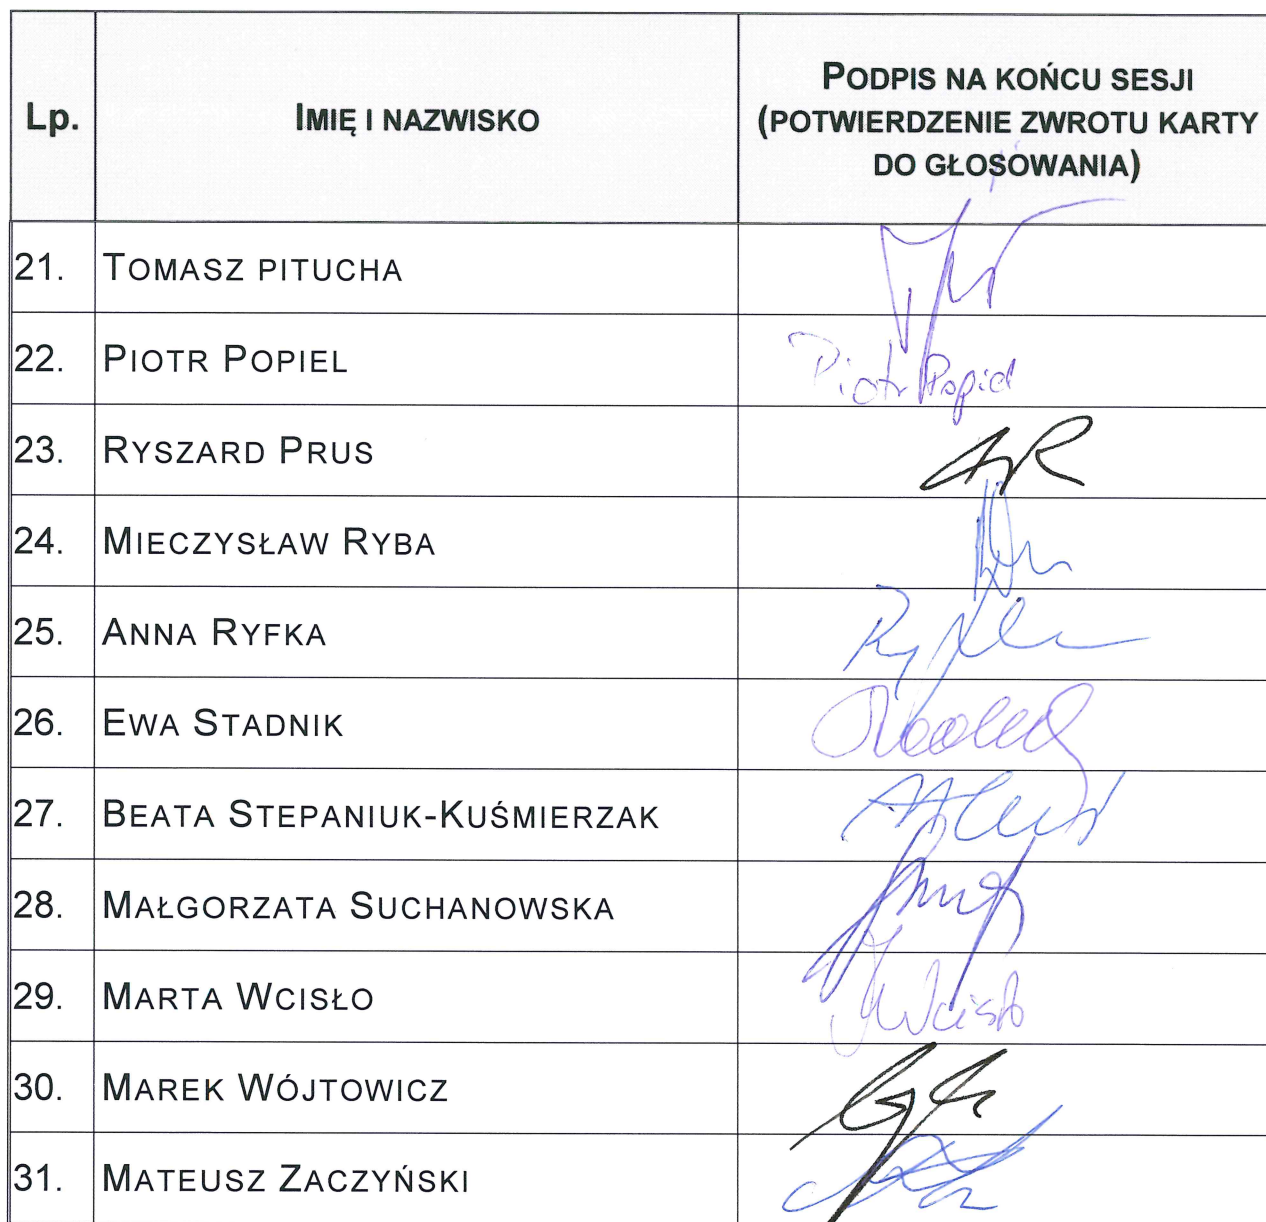 Lp. IMIĘ I NAZWISKO PODPIS NA KOŃCU SESJI
(POTWIERDZENIE ZWROTU KARTY
DO GŁOSOWANIA)
21. TOMASZ PITUCHA
22. PIOTR POPIEL Piotr Popiel
23. RYSZARD PRUS
24. MIECZYSŁAW RYBA
25. ANNA RYFKA
26. EWA STADNIK
27. BEATA STEPANIUK-KUŚMIERZAK
28. MAŁGORZATA SUCHANOWSKA
29. MARTA WCISŁO MWcisło
30. MAREK WÓJTOWICZ
31. MATEUSZ ZACZYŃSKI